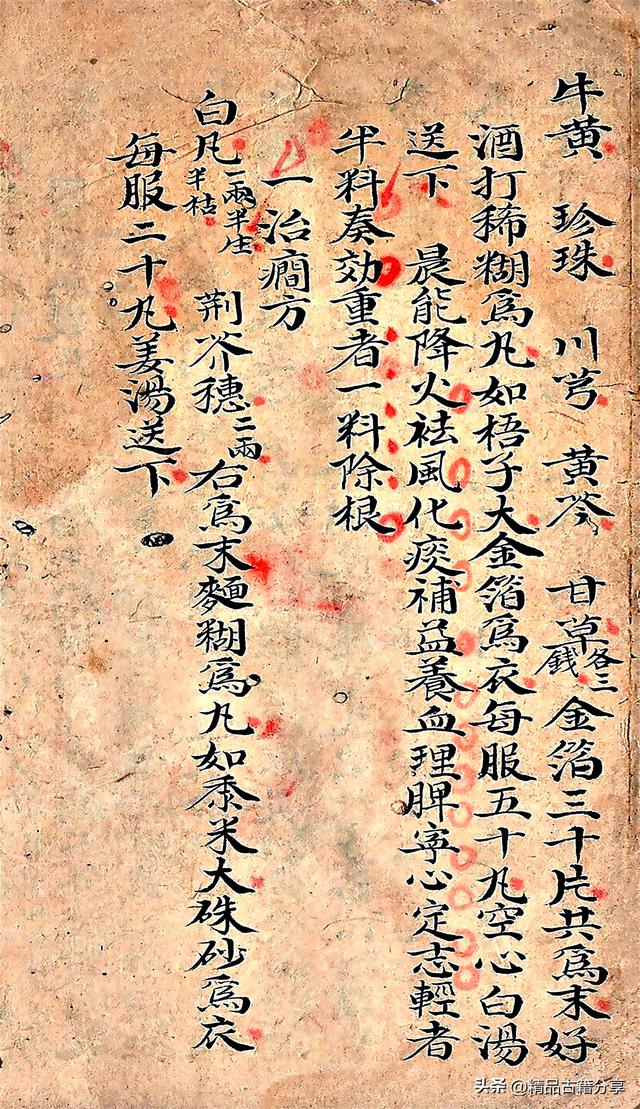 牛黄 珍珠 川芎 黄芩 甘草各三錢 金箔三十片共爲末好
酒打稀糊爲丸如梧子大金箔爲衣每服五十丸空心白湯
送下 晨能降火祛風化痰補益養血理脾寧心定志輕者
半料奏効重者一料除根
一治癇方
白凡一兩半生半枯 荆芥穗二兩 右爲末麵糊爲丸如黍米大硃砂爲衣
每服二十丸姜湯送下
头条 @精品古籍分享